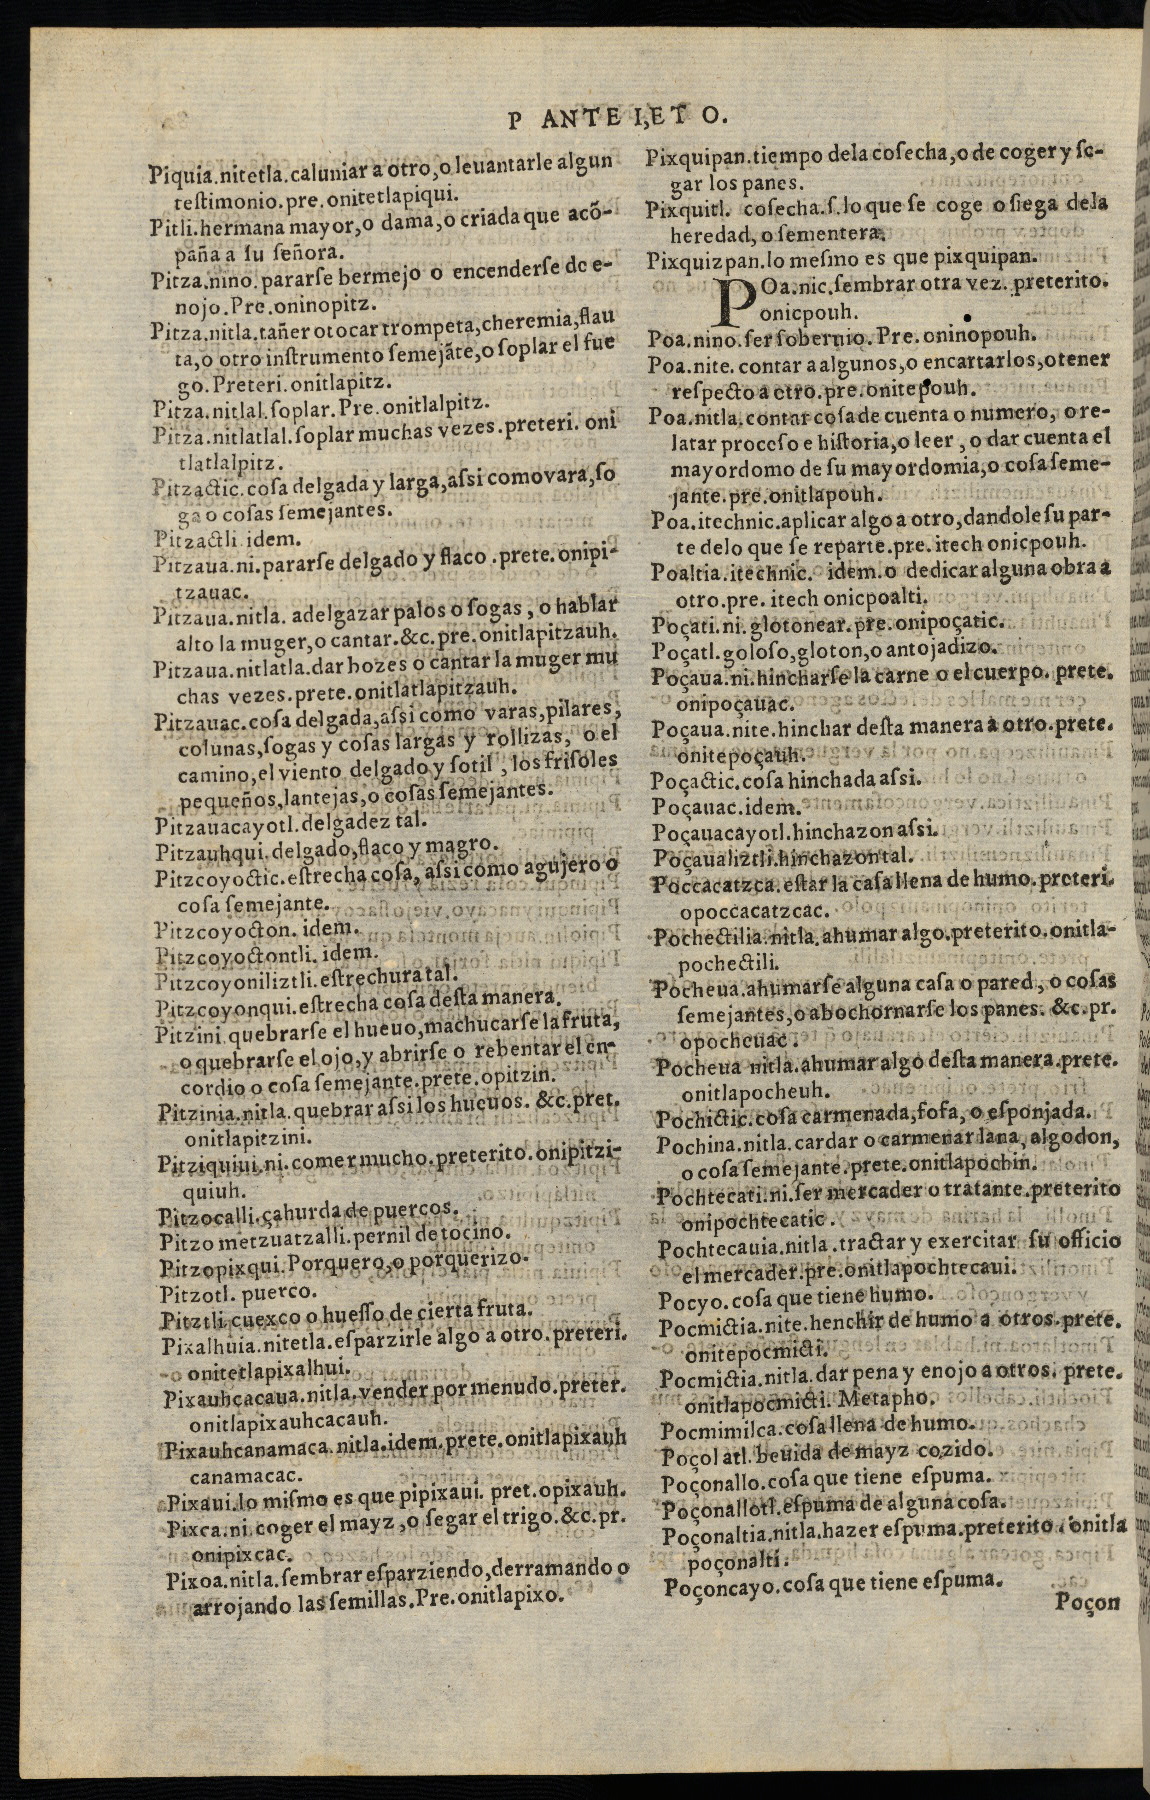 P ANTE I, ET O.
Piquia.nitetla.caluniar a otro,o leuantarle algun
teſtimonio.pre.onitetlapiqui.
Pitli.hermana mayor,o dama,o criada que acõ-
paña a ſu ſeñora.
Pitza.nino.pararſe bermejo o encenderſe de e-
nojo.Pre.oninopitz.
Pitza.nitla.tañer o tocar trompeta,cheremia,flau
ta,o otro inſtrumento ſemejãte,o ſoplar el fue
go.Preteri.onitlapitz.
Pitza.nitlal.ſoplar.Pre.onitlalpitz.
Pitza.nitlatlal.ſoplar muchas vezes.preteri. oni
tlatlalpitz.
Pitzactic.coſa delgada y larga,aſsi como vara,ſo
ga o coſas ſemejantes.
Pitzactli.idem.
Pitzaua.ni.pararſe delgado y flaco.prete.onipi-
tzauac.
Pitzaua.nitla. adelgazar palos o ſogas, o hablar
alto la muger,o cantar.&c.pre.onitlapitzauh.
Pitzaua.nitlatla.dar bozes o cantar la muger mu
chas vezes.prete.onitlatlapitzauh.
Pitzauac.coſa delgada,aſsi como varas,pilares,
colunas,ſogas y coſas largas y rollizas, o el
camino,el viento delgado y ſotil, los friſoles
pequeños,lantejas,o coſas ſemejantes.
Pitzauacayotl.delgadez tal.
Pitzauhqui.delgado,flaco y magro.
Pitzcoyoctic.eſtrecha coſa, aſsi como agujero o
coſa ſemejante.
Pitzcoyocton. idem.
Pitzcoyoctontli. idem.
Pitzcoyoniliztli.eſtrechura tal.
Pitzcoyonqui.eſtrecha coſa deſta manera.
Pitzini.quebrarſe el hueuo,machucarſe la fruta,
o quebrarſe el ojo,y abrirſe o rebentar el en-
cordio o coſa ſemejante.prete.opitzin.
Pitzinia.nitla.quebrar aſsi los hueuos. &c.pret.
onitlapitzini.
Pitziquiui.ni.comer mucho.preterito.onipitzi-
quiuh.
Pitzocalli.çahurda de puercos.
Pitzo metzuatzalli.pernil de tocino.
Pitzopixqui.Porquero,o porquerizo.
Pitzotl. puerco.
Pitztli.cuexco o hueſſo de cierta fruta.
Pixalhuia.nitetla.eſparzirle algo a otro.preteri.
onitetlapixalhui.
Pixauhcacaua.nitla.vender por menudo.preter.
onitlapixauhcacauh.
Pixauhcanamaca.nitla.idem.prete.onitlapixauh
canamacac.
Pixaui.lo miſmo es que pipixaui. pret.opixauh.
Pixca.ni.coger el mayz,o ſegar el trigo.&c.pr.
onipixcac.
Pixoa.nitla.ſembrar eſparziendo,derramando o
arrojando las ſemillas.Pre.onitlapixo.
Pixquipan.tiempo dela coſecha,o de coger y ſe-
gar los panes.
Pixquitl. coſecha.ſ.lo que ſe coge o ſiega dela
heredad,o ſementera.
Pixquizpan.lo meſmo es que pixquipan.
POa.nic.ſembrar otra vez. preterito.
onicpouh.
Poa.nino.ſer ſoberuio.Pre.oninopouh.
Poa.nite.contar a algunos,o encartarlos,o tener
reſpecto a otro.pre.onitepouh.
Poa.nitla.contar coſa de cuenta o numero, o re-
latar proceſo e hiſtoria,o leer, o dar cuenta el
mayordomo de ſu mayordomia,o coſa ſeme-
jante.pre.onitlapouh.
Poa.itechnic.aplicar algo a otro,dandole ſu par-
te delo que ſe reparte.pre.itech onicpouh.
Poaltia.itechnic. idem.o dedicar alguna obra a
otro.pre. itech onicpoalti.
Poçati.ni.glotonear.pre.onipoçatic.
Poçatl.goloſo,gloton,o antojadizo.
Poçaua.ni.hincharſe la carne o el cuerpo. prete.
onipoçauac.
Poçaua.nite.hinchar deſta manera a otro.prete.
onitepoçauh.
Poçactic.coſa hinchada aſsi.
Poçauac.idem.
Poçauacayotl.hinchazon aſsi.
Poçaualiztli.hinchazon tal.
Poccacatzca.eſtar la caſa llena de humo.preteri.
opoccacatzcac.
Pochectilia.nitla.ahumar algo.preterito.onitla-
pochectili.
Pocheua.ahumarſe alguna caſa o pared, o coſas
ſemejantes,o abochornarſe los panes. &c.pr.
opocheuac.
Pocheua nitla.ahumar algo deſta manera.prete.
onitlapocheuh.
Pochictic.coſa carmenada,fofa, o eſponjada.
Pochina.nitla.cardar o carmenar lana, algodon,
o coſa ſemejante.prete.onitlapochin.
Pochtecati.ni.ſer mercader o tratante.preterito
onipochtecatic.
Pochtecauia.nitla.tractar y exercitar ſu officio
el mercader.pre.onitlapochtecaui.
Pocyo.coſa que tiene humo.
Pocmictia.nite.henchir de humo a otros.prete.
onitepocmicti.
Pocmictia.nitla.dar pena y enojo a otros. prete.
onitlapocmicti. Metapho.
Pocmimilca.coſa llena de humo.
Poçol atl.beuida de mayz cozido.
Poçonallo.coſa que tiene eſpuma.
Poçonallotl.eſpuma de alguna coſa.
Poçonaltia.nitla.hazer eſpuma.preterito.onitla
poçonalti.
Poçoncayo.coſa que tiene eſpuma.
Poçon